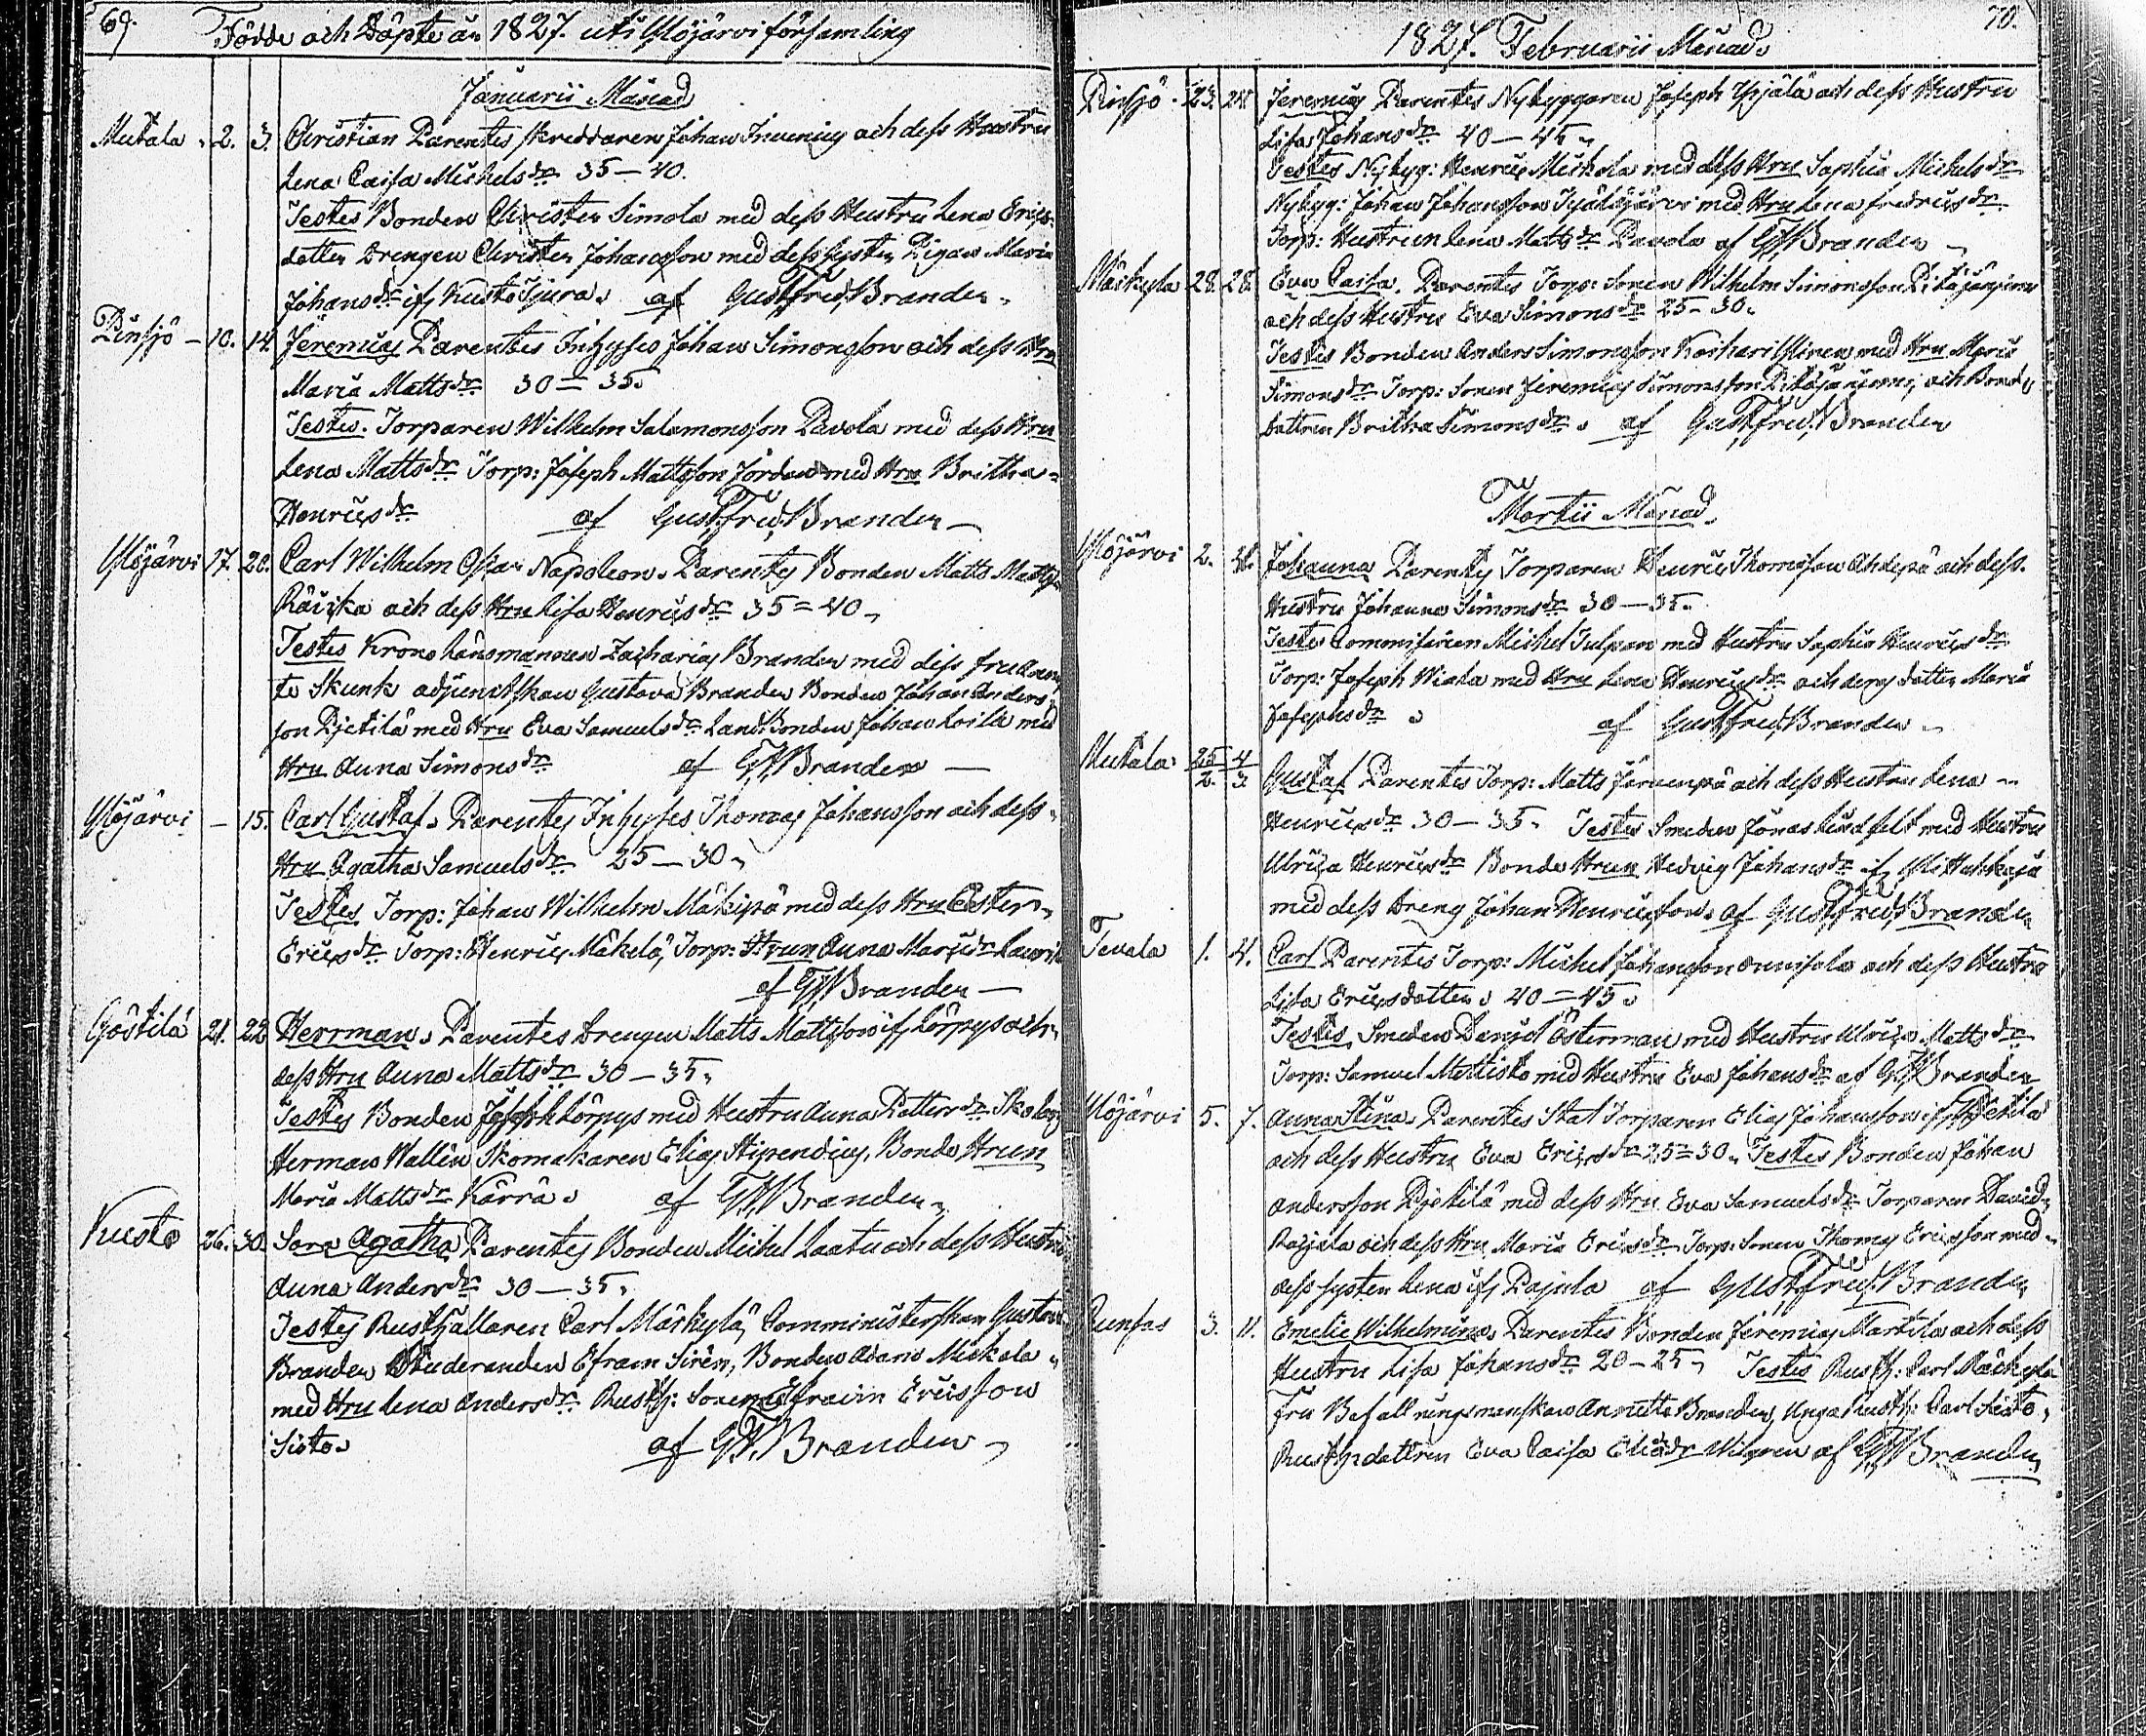 69. Födde och Döpte år 1827. uti Ylöjärvi församling
Januarii Månad
Mutala 2. 3. Christian Parentes skreddaren Johan Juvenius och dess Hustru
Lena Caisa Michelsdr 35–40.
Testes Bonden Christer Simola med dess Hustru Lena Erics
dotter Drengen Christer Johansson med dess Syster Pigan Maria
Johansdr if: Kusto Tjura. af Gust: Fred: Brander.
Pinsjö – 10. 14. Jeremias Parentes Inhyses Johan Simonsson och dess Hru
Maria Mattsdr 30=35.
Testes. Torparen Wilhelm Salomonsson Pavola med dess Hru
Lena Mattsdr Torp: Joseph Mattsson Jordan med Hru Britha
Henricsdr af Gust: Fred: Brander
Ylöjärvi 17. 20. Carl Wilhelm Oscar Napoleon. Parentes Bonden Matts Matts
Räicka och dess Hru Lisa Henricsdr 35=40
Testes Krono Länsmannen Zacharias Brander med dess fru
te Skunk adjunctskan Gustava Brander Bonden Johan Anders
son Pjetilä med Hru Eva Samuelsdr Land: Bonden Johan Loila med
Hru Anna Simonsdr af G: F: Brander —
Ylöjärvi – 15. Carl Gustaf. Parentes Inhyses Thomas Johansson och dess
Hru Agatha Samuelsdr 25–30
Testes Torp: Johan Wilhelm Mäkipä med dess Hru Ester
Ericsdr Torp: Henric Mäkelä, Torp: Hrun Anna Maria
af G: F: Brander —
Göstilä 21. 22 Herrman. Parentes Drengen Matts Mattsson if: Körpys och
dess Hru Anna Mattsdr 30–35
Testes Bonden Joseph Körpys med Hustru Anna
Herman Wallin Skomakaren Elias Stipendius, Bonde Hrun
Maria Mattsdr Kärrä. af G: F: Brander
Kusto 26. 30. Sara Agatha Parentes Bonden Michel Laatu och dess Hustru
Anna Andersdr 30–35
Testes Rusthållaren Carl Mäckylä, Comministerskan Gustava
Brander Studeranden Efraim Sirén, Bonden Adam Mickola
med Hru Lena Andersdr Rusth: Sonen Efraim Ericsson
Sisto. af G: F: Brander
1827. Februarii Månad. 70.
Pinsjö 23. 24. Jeremias Parentes Nybyggaren Joseph Ypjälä och dess Hustru
Lisa Johansdr 40–45
Testes Nybyg: Henric Mickola med dess Hru Sophia Michelsdr
Nybyg: Johan Johansson med Hru Lena Fredricsdr
Torp: Hustrun Lena Mattsdr Pavola af G: F: Brander
Mäckylä 28. 28. Eva Caisa. Parentes Torp: Sonen Wilhelm Simonsson
och dess Hustru Eva Simonsdr 25–30.
Testes Bonden Anders Simonsson med Hru Maria
Simonsdr Torp: Sonen Jeremias Simonsson och Bonde
dottren Britha Simonsdr. af Gust: Fred: Brander
Martii Månad.
Ylöjärvi 2. 4. Johanna Parentes Torparen Henric Thomsson Ahdepä och dess
Hustru Johanna Simonsdr 30–35.
Testes Commissarien Michel Tulpan med Hustru Sophia Henricsdr
Torp: Joseph Wiala med Hru Lena Henricsdr och deras dotter Maria
Josephsdr. af Gust: Fred: Brander
Mutala 25/2. 4/3. Gustaf Parentes Torp: Matts Järvenpä och dess Hustru Lena
Henricsdr 30–35. Testes Smeden Jonas Lindfelt med Hustru
Ulrica Henricsdr Bonde Hrun Hedvig Johansdr if:
med dess Dreng Johan Henricsson. af Gust: Fred: Brander
Tevala 1. 4. Carl Parentes Torp: Michel Johansson och dess Hustru
Lisa Ericsdotter. 40=45.
Testes Smeden Daniel Österman med Hustru Ulrica Mattsdr
Torp: Samuel Mettistö med Hustru Eva Johansdr af G: F: Brander
Ylöjärvi 5. 7. Anna Stina. Parentes Stat Torparen Elias Johansson if: Pjetilä
och dess Hustru Eva Ericsdr 25=30. Testes Bonden Johan
Andersson Pjetilä med dess Hru Eva Samuelsdr Torparen David
Pajula och dess Hru Maria Ericsdr Torp: Sonen Thomas Ericsson med
dess syster Lena if: Pajula af Gust: Fred: Brander
Runsas 3. 11. Emelie Wilhelmina. Parentes Bonden Jeremias Martila och dess
Hustru Lisa Johansdr 20–25 Testes Rusth: Carl Mäckylä
Fru Befallningsmanskan Annette Brander, Unga Rusth: Carl Sisto,
Rusth: dottren Eva Caisa Eliædr af G: F: Brander